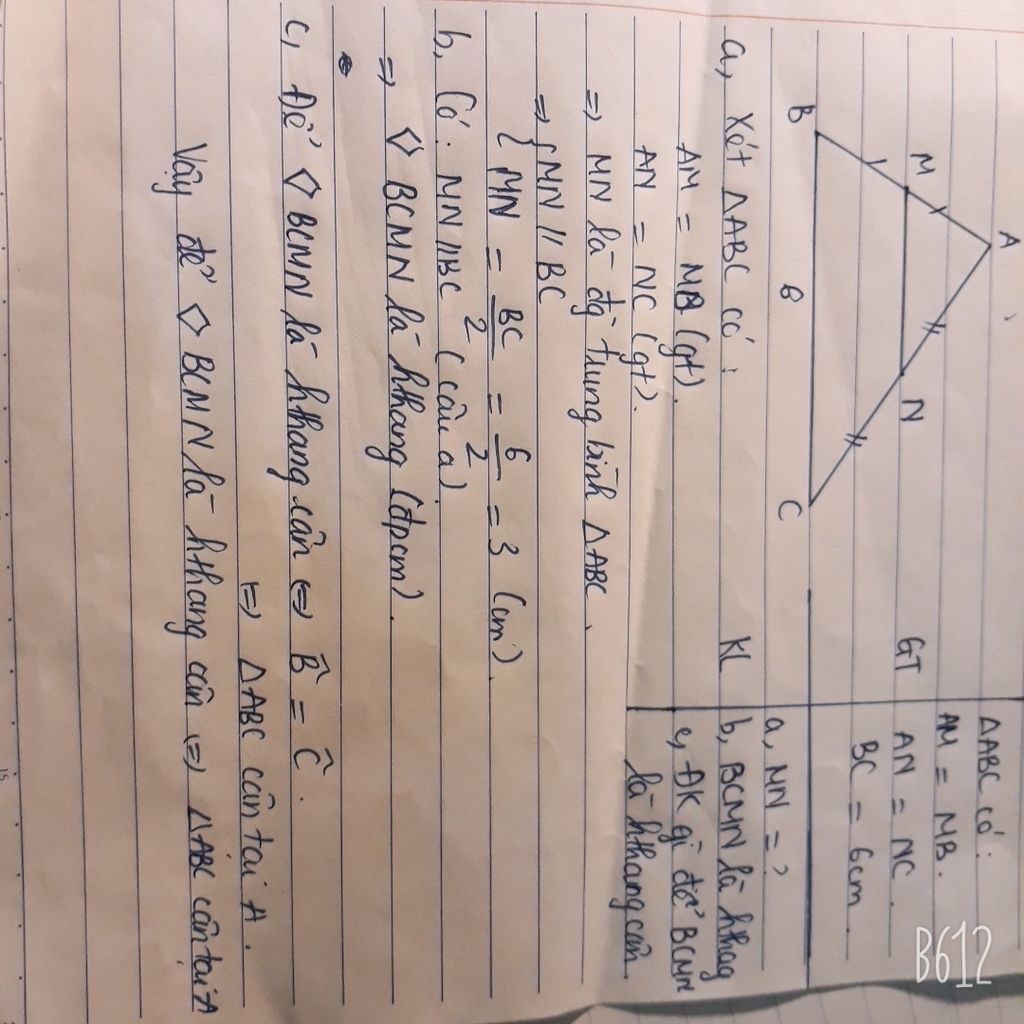 A
M
N
B
6
C
GT
ΔABC có:
AM = MB.
AN = NC.
BC = 6cm
KL
a, MN = ?
b, BCMN là hthag
c, ĐK gì để BCMN
là hthang cân
a, Xét ΔABC có:
AM = MB (gt).
AN = NC (gt).
=> MN là đg trung bình ΔABC.
=> { MN // BC
{ MN = BC/2 = 6/2 = 3 (cm).
b, Có: MN // BC (câu a).
=> ◇ BCMN là hthang (đpcm).
c, Để ◇ BCMN là hthang cân <=> B̂ = Ĉ.
<=> ΔABC cân tại A.
Vậy để ◇ BCMN là hthang cân <=> ΔABC cân tại A
B612